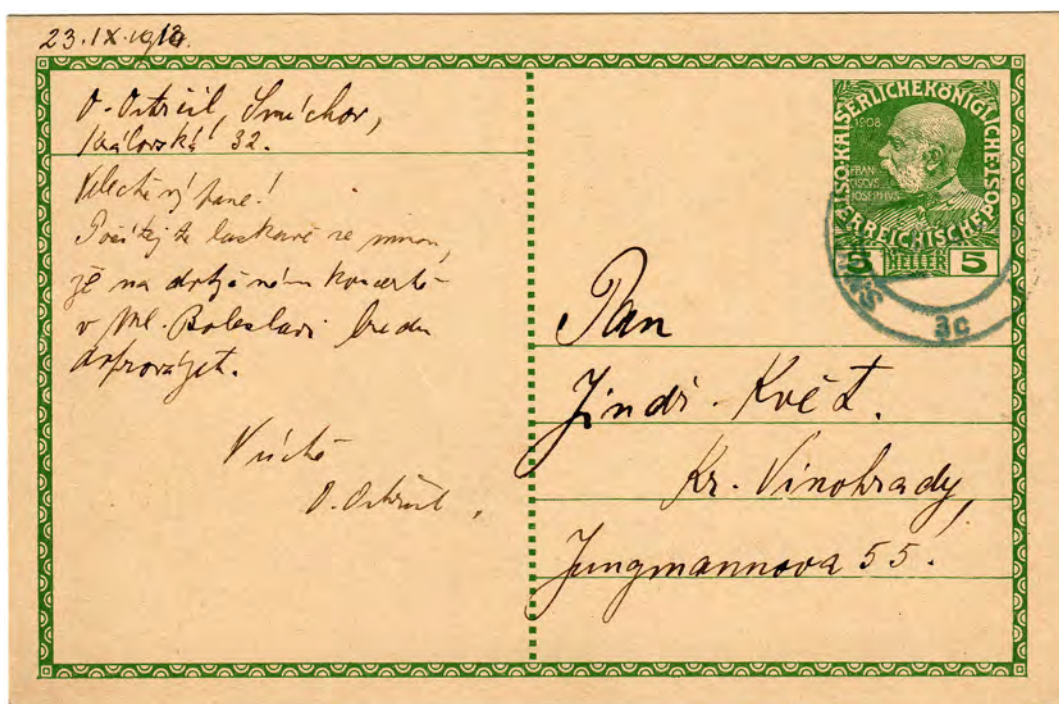 23.IX.1913.
O. Ostrčil, Smíchov,
Královská 32.
Velectěný pane!
Počítejte laskavě se mnou,
že na dotyčném koncertě
v Ml. Boleslavi budu
doprovázet.
V úctě
O. Ostrčil,
KAISERLICHE KÖNIGLICHE ÖSTERREICHISCHE POST
1908
FRAN
CISCVS
IOSEPHVS
5 HELLER 5
3c
Pan
Jindř. Květ.
Kr. Vinohrady,
Jungmannova 55.